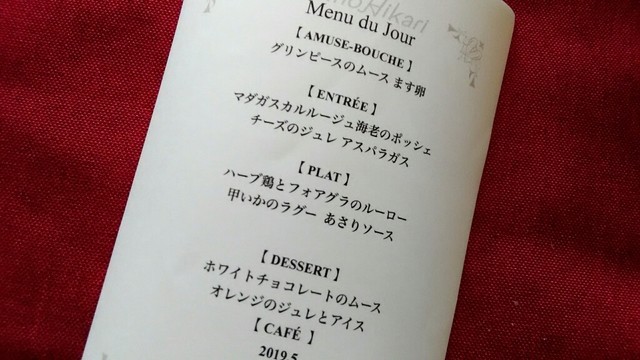 Hikari
Menu du Jour
【 AMUSE-BOUCHE 】
グリンピースのムース ます卵
【 ENTRÉE 】
マダガスカルルージュ海老のポッシェ
チーズのジュレ アスパラガス
【 PLAT 】
ハーブ鶏とフォアグラのルーロー
甲いかのラグー あさりソース
【 DESSERT 】
ホワイトチョコレートのムース
オレンジのジュレとアイス
【 CAFÉ 】
2019.5